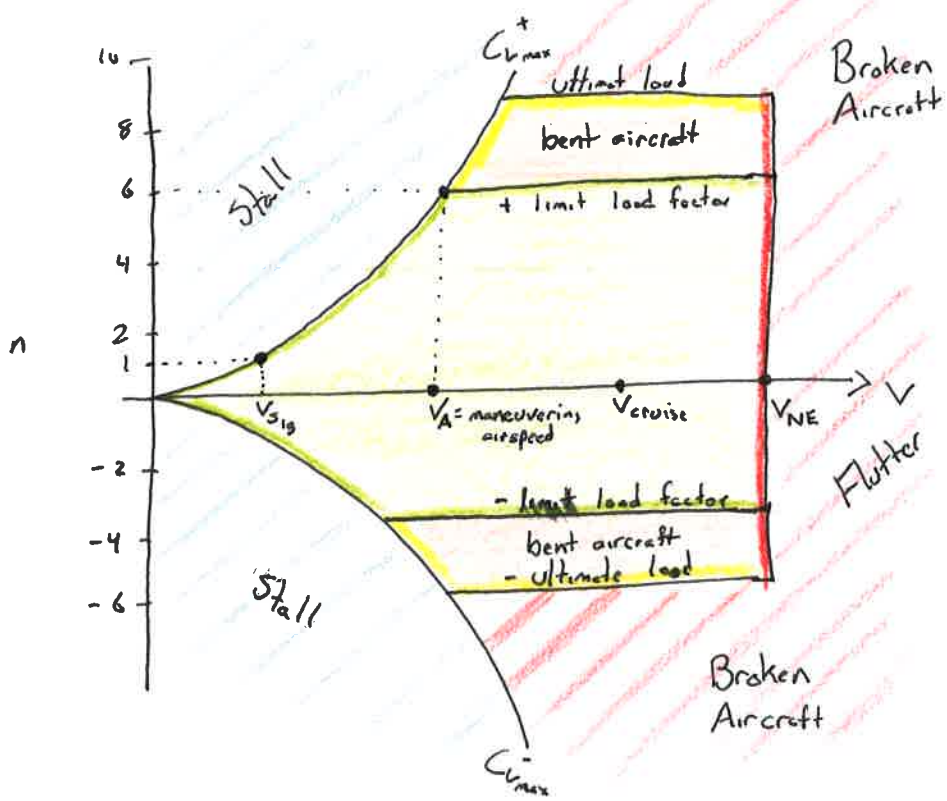 10
8
6
4
2
1
-2
-4
-6
n
C_Lmax^+
ultimat load
Broken
Aircraft
bent aircraft
Stall
+ limit load factor
V_S1g
V_A = maneuvering
airspeed
V_cruise
V_NE
V
Flutter
- limit load factor
bent aircraft
- ultimate load
Stall
Broken
Aircraft
C_Lmax^-